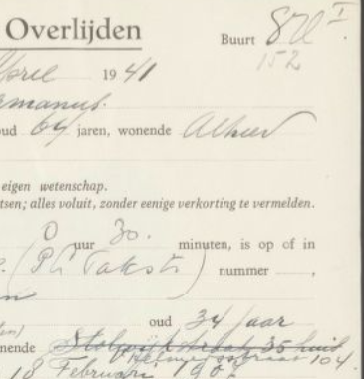 Overlijden
Buurt 8 U I.
152
April 1941
manus.
oud 64 jaren, wonende Alhier
eigen wetenschap.
tsen; alles voluit, zonder eenige verkorting te vermelden.
0 uur 30. minuten, is op of in
nummer ,
oud 34 jaar
nende straat 35 huis
straat 104.
18 Februari 190